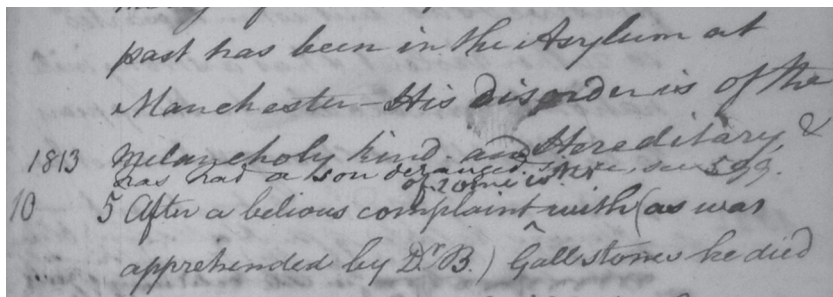 past has been in the Asylum at
Manchester – His disorder is of the
1813 Melancholy kind and Hereditary, &
has had a son deranged since, see 599.
of 2
10 5 After a belious complaint with (as was
apprehended by Dr. B.) Gall stones he died